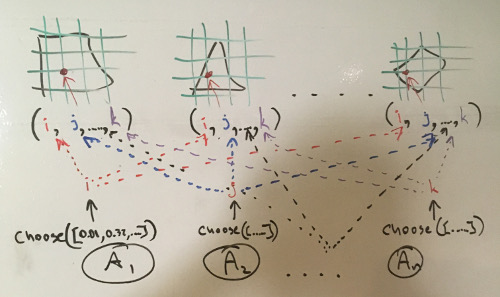 (i, j, ..., k) (i, j, ..., k) (i, j, ..., k)
i j k
choose([0.01, 0.32, ...]) choose([....]) choose([.....])
A1 A2 .... An